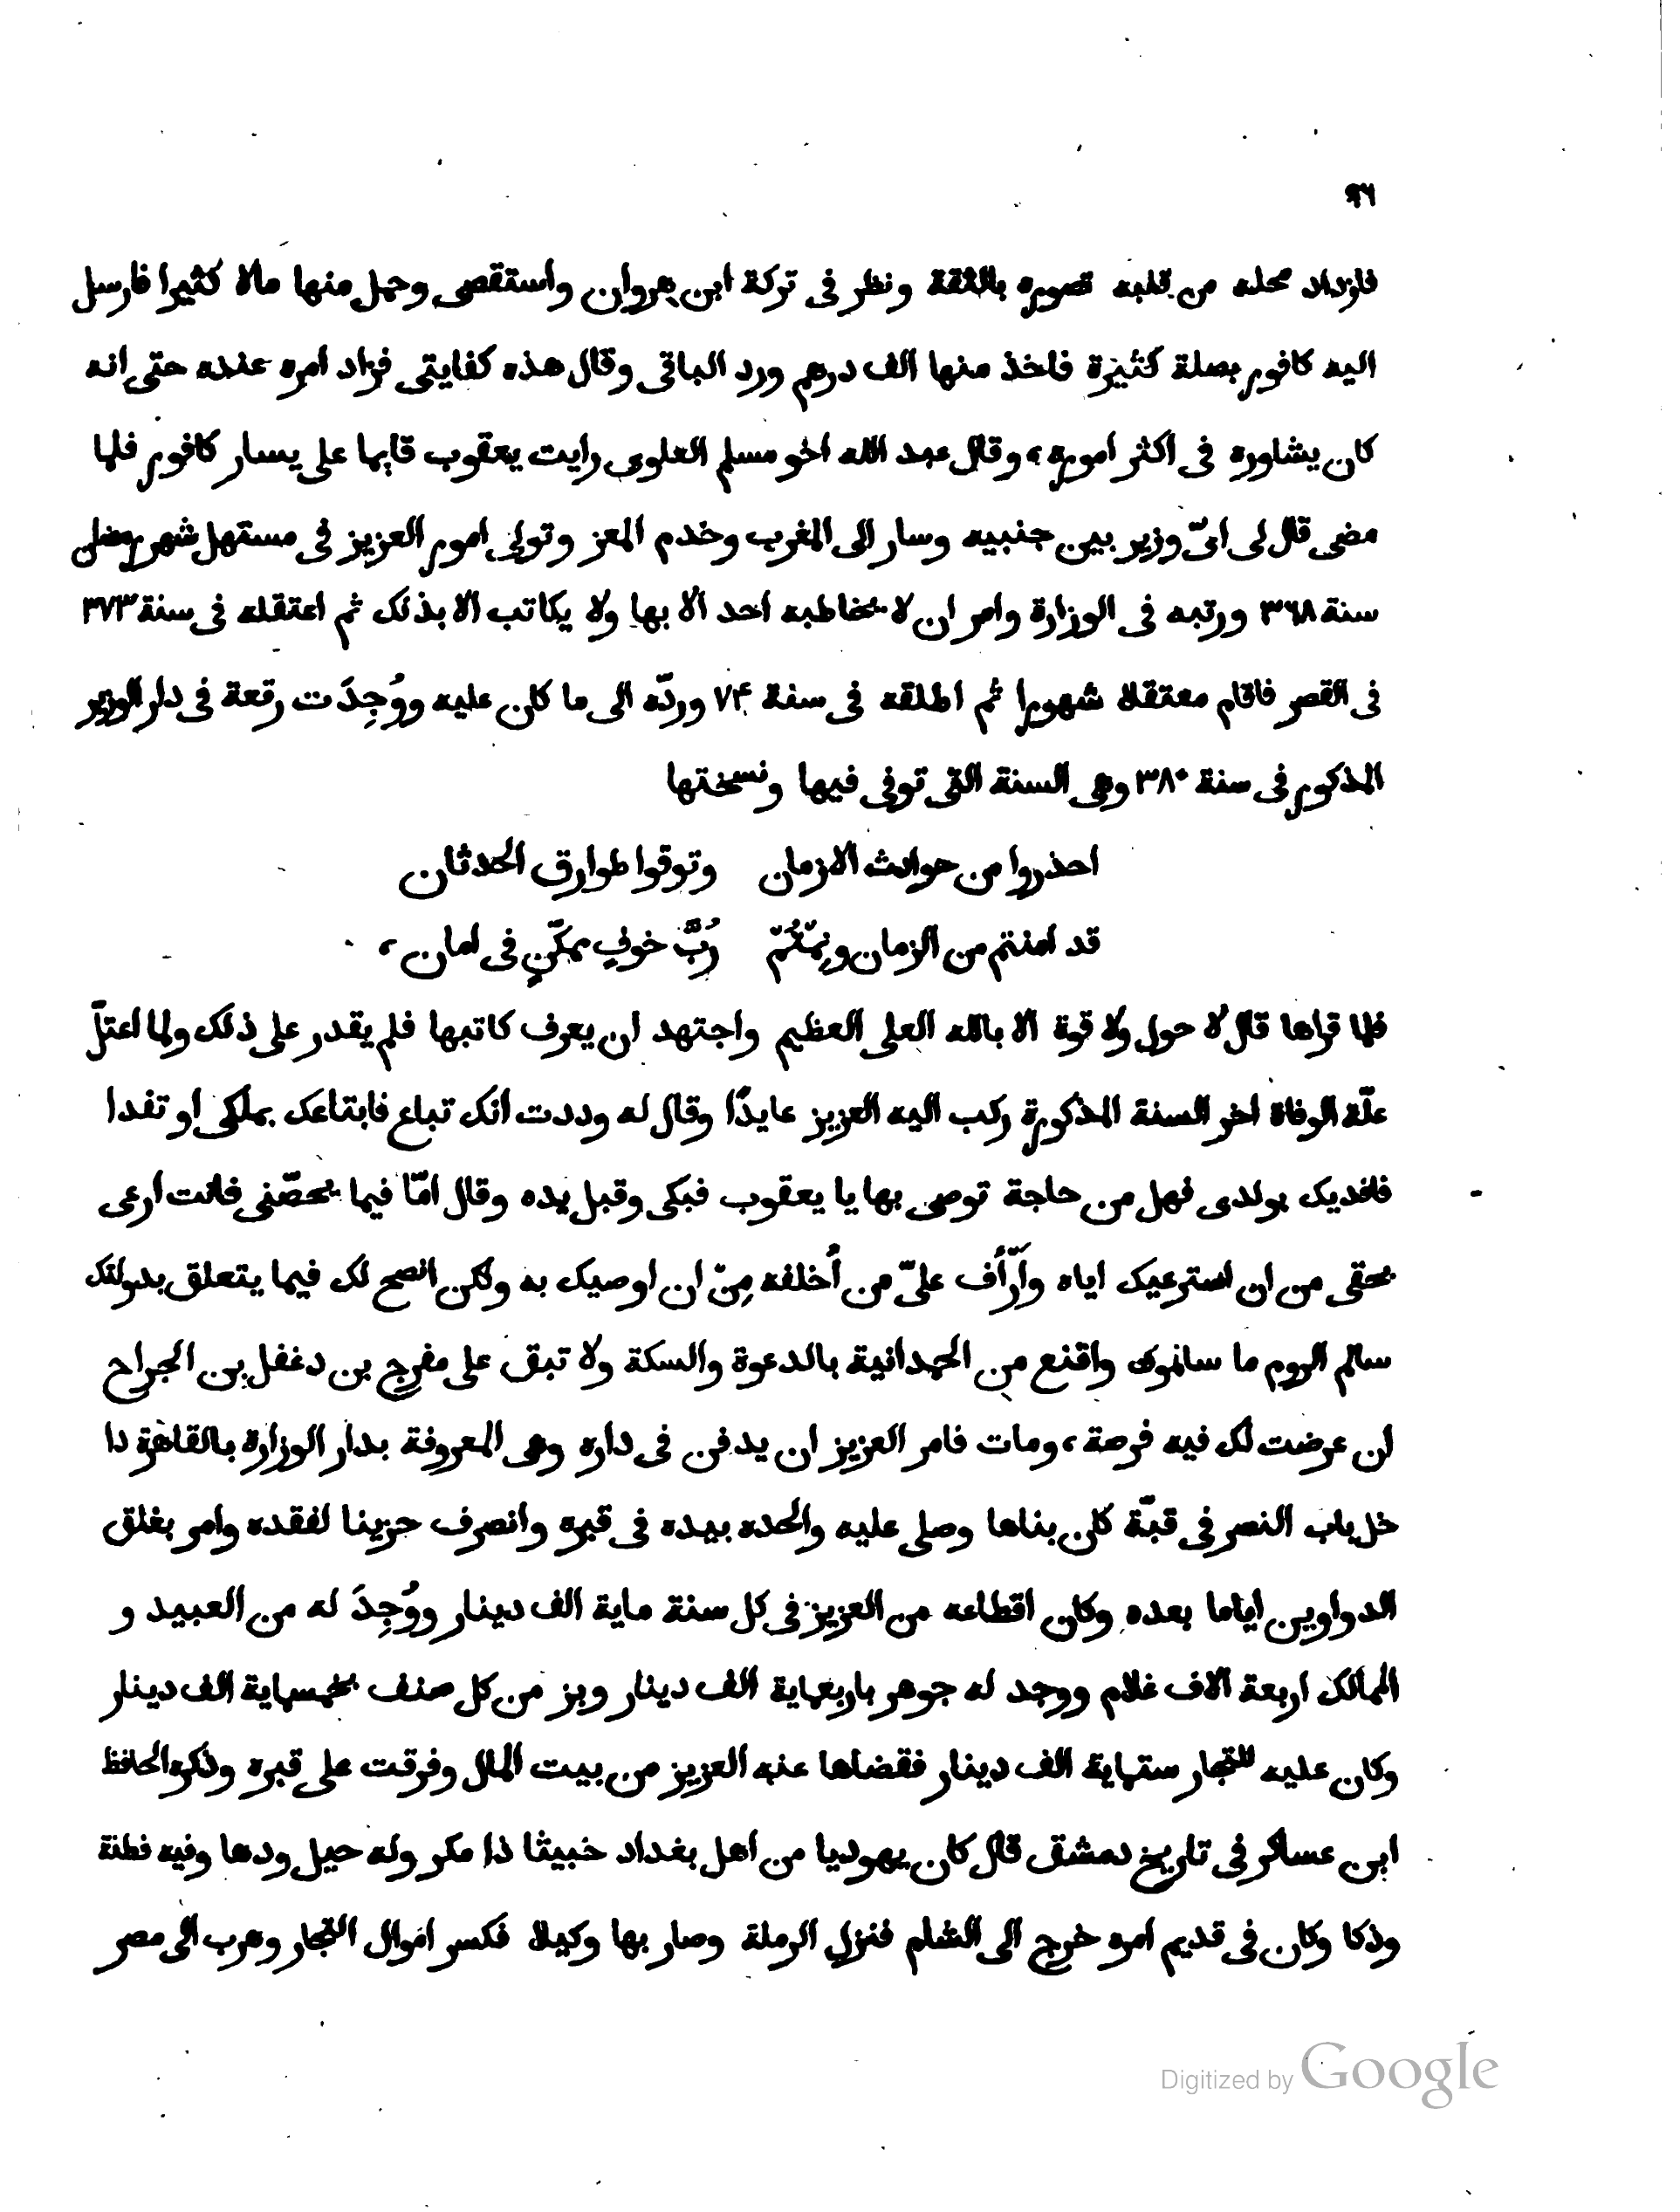 ٩٦
فازداد محله من قلبه تصوره بالثقة ونظر فى تركة ابن هروان واستقصى وحمل منها مالا كثيرا فارسل
اليه كافور بصلة كثيرة فاخذ منها الف درهم ورد الباقى وقال هذه كفايتى فزاد امره عنده حتى انه
كان يشاوره فى اكثر اموره، وقال عبد الله اخو مسلم العلوى رايت يعقوب قايما على يسار كافور فلما
مضى قال لى اىّ وزير بين جنبيه وسار الى المغرب وخدم المعز وتولى امور العزيز فى مستهل شهر رمضان
سنة ٣٦٨ ورتبه فى الوزارة وامر ان لا يخاطبه احد الا بها ولا يكاتب الا بذلك ثم اعتقله فى سنة ٣٧٣
فى القصر فاقام معتقلا شهورا ثم اطلقه فى سنة ٧۴ وردّه الى ما كان عليه ووُجِدَت رقعة فى دار الوزير
المذكور فى سنة ٣٨٠ وهى السنة التى توفى فيها ونسختها
احذروا من حوادث الازمان وتوقوا طوارق الحدثان
قد امنتم من الزمان ونِمْتُمْ رُبَّ خوفٍ ممكّنٍ فى امان،
فلما قراها قال لا حول ولا قوة الا بالله العلى العظيم واجتهد ان يعرف كاتبها فلم يقدر على ذلك ولما اعتلّ
علّة الوفاة اخر السنة المذكورة ركب اليه العزيز عايدًا وقال له وددت انك تباع فابتاعك بملكى او تفدا
فافديك بولدى فهل من حاجة توصى بها يا يعقوب فبكى وقبل يده وقال امّا فيما يخصّنى فانت ارعى
بحقى من ان استرعيك اياه وأَرْأَف علىّ من أُخلفه مِنْ ان اوصيك به ولكن انصح لك فيما يتعلق بدولتك
سالم الروم ما سالموك واقنع من الحمدانية بالدعوة والسكة ولا تبق على مفرج بن دغفل بن الجراح
ان عرضت لك فيه فرصة، ومات فامر العزيز ان يدفن فى داره وهى المعروفة بدار الوزارة بالقاهرة دا
خل باب النصر فى قبّة كان بناها وصلى عليه والحده بيده فى قبره وانصرف حزينا لفقده وامر بغلق
الدواوين اياما بعده وكان اقطاعه من العزيز فى كل سنة ماية الف دينار ووُجِدَ له من العبيد و
المماليك اربعة الاف غلام ووجد له جوهر باربعماية الف دينار وبز من كل صنف بخمسماية الف دينار
وكان عليه للتجار ستماية الف دينار فقضاها عنه العزيز من بيت المال وفرقت على قبره وذكره الحافظ
ابن عساكر فى تاريخ دمشق قال كان يهوديا من اهل بغداد خبيثا ذا مكر وله حيل ودها وفيه فطنة
وذكا وكان فى قديم امره خرج الى الشام فنزل الرملة وصار بها وكيلا فكسر اموال التجار وهرب الى مصر
Digitized by Google